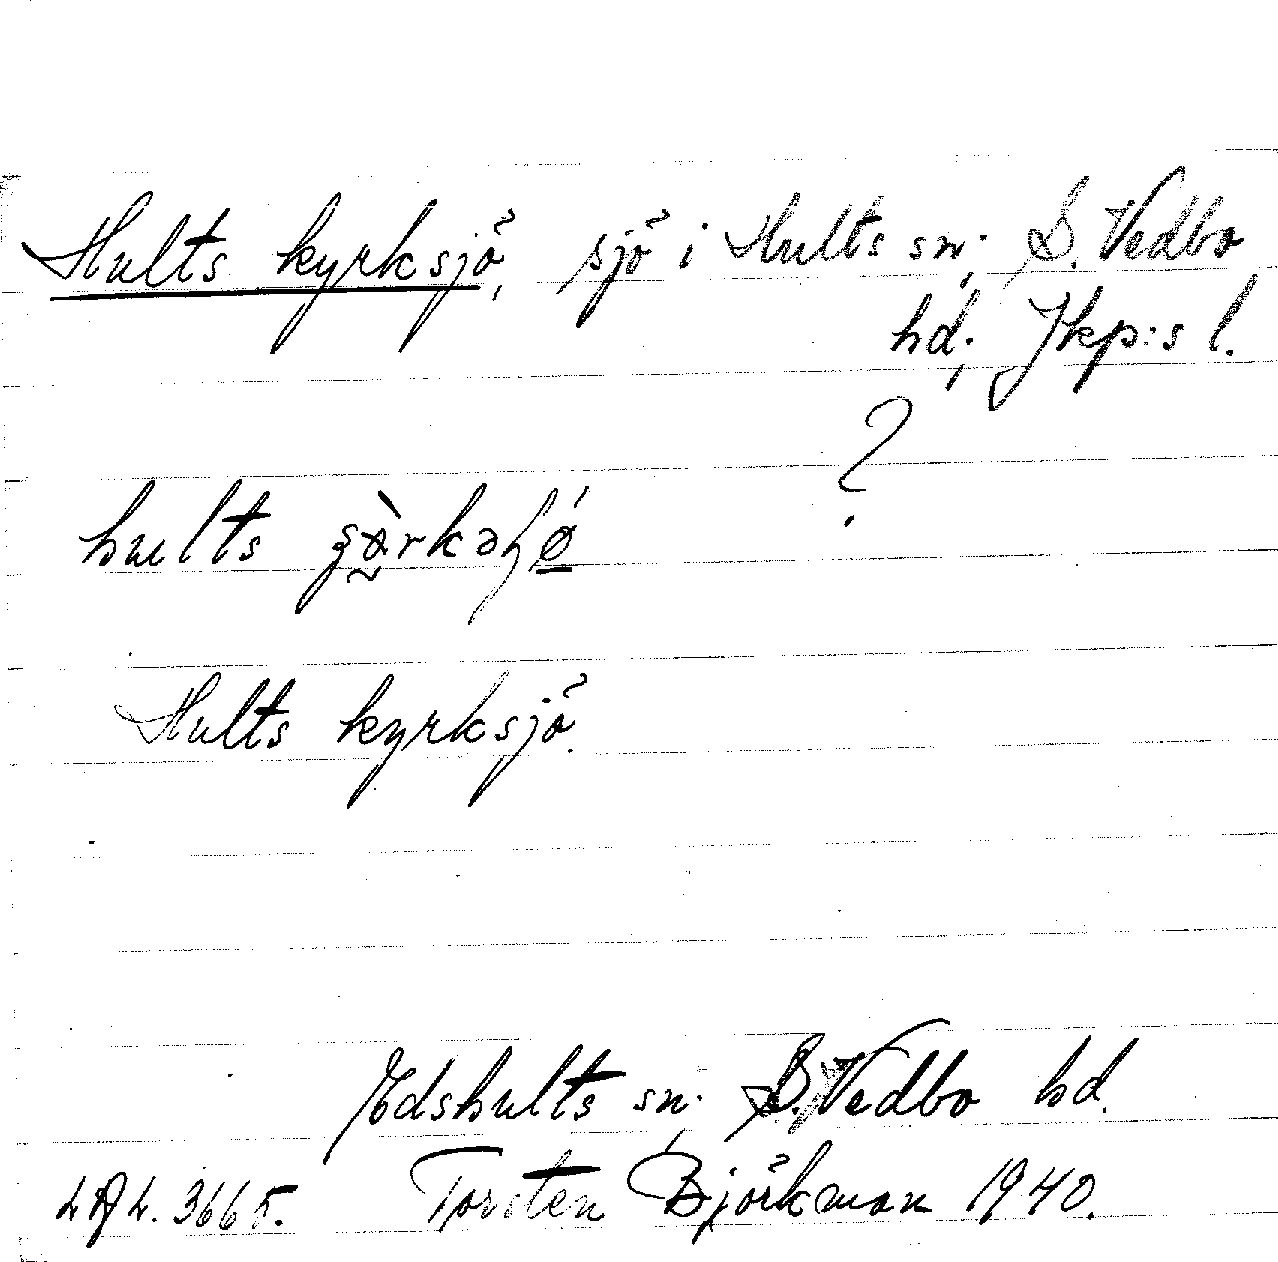 Hults kyrksjö, sjö i Hults sn; S. Vedbo
hd; Jkp:s l.
?
hults
Hults kyrksjö.
Edshults sn. S. Vedbo hd.
Torsten Björkman 1940.